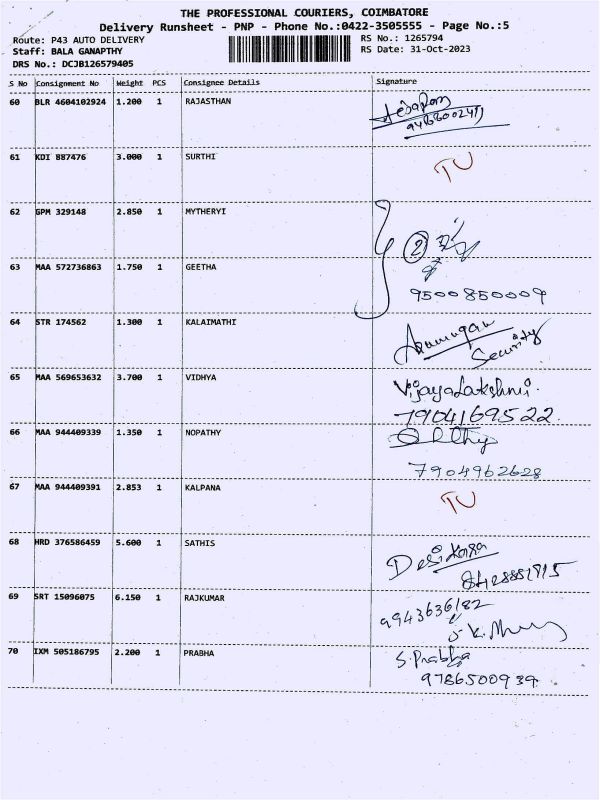 THE PROFESSIONAL COURIERS, COIMBATORE
Delivery Runsheet - PNP - Phone No.:0422-3505555 - Page No.:5
Route: P43 AUTO DELIVERY RS No.: 1265794
Staff: BALA GANAPTHY RS Date: 31-Oct-2023
DRS No.: DCJB126579405
S No Consignment No Weight PCS Consignee Details Signature
60 BLR 4604102924 1.200 1 RAJASTHAN
61 KDI 887476 3.000 1 SURTHI TU
62 GPM 329148 2.850 1 MYTHERYI
2
63 MAA 572736863 1.750 1 GEETHA
9500850009
64 STR 174562 1.300 1 KALAIMATHI Arumugam
Security
65 MAA 569653632 3.700 1 VIDHYA VijayaLakshmi.
7904169522.
66 MAA 944409339 1.350 1 NOPATHY
7904962628
67 MAA 944409391 2.853 1 KALPANA TU
68 HRD 376586459 5.600 1 SATHIS
69 SRT 15096075 6.150 1 RAJKUMAR 9943636182
70 IXM 505186795 2.200 1 PRABHA S.Prabha
9786500939